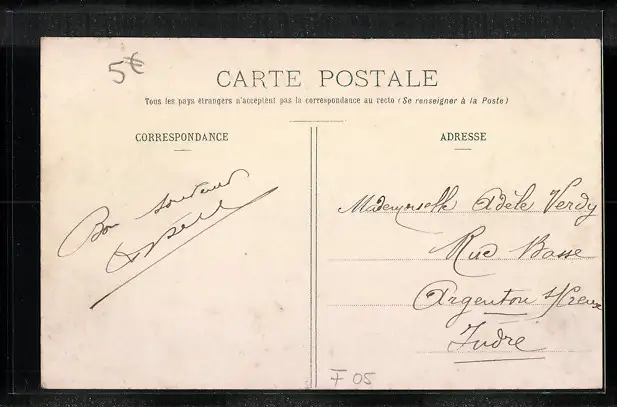 5€
CARTE POSTALE
Tous les pays étrangers n'acceptent pas la correspondance au recto (Se renseigner à la Poste)
CORRESPONDANCE
ADRESSE
Bon
Mademoiselle Adèle Verdy
Rue Basse
Argenton s/Creuse
Indre
F 05